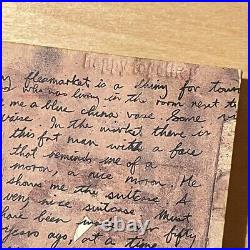 happy together
fleamarket is a thing for tour
who was living in the room next to
me a blue china vase. Same
vase. In the market there is
this fat man with a face
that reminds me of a
moron, a nice moron. He
shows me the suitcase. A
very nice suitcase. Must
have been over fifty
years ago, at a time